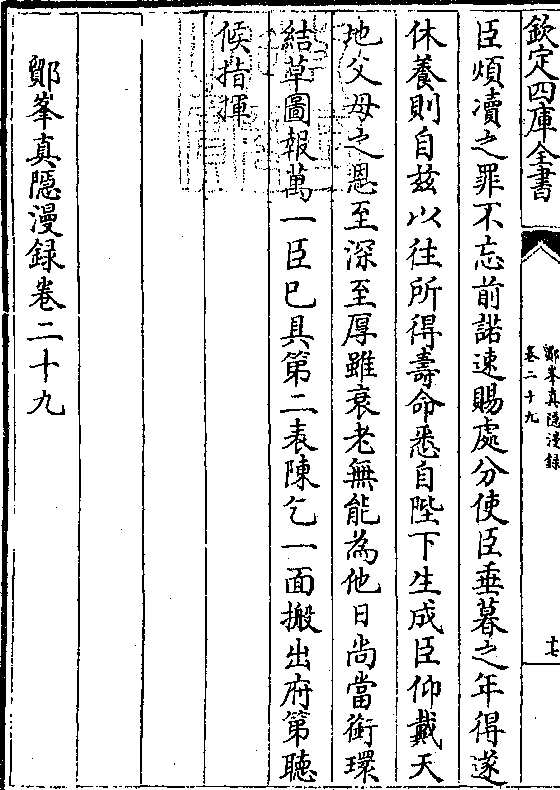 欽定四庫全書
鄮峯真隠漫録
卷二十九
十七
臣煩凟之罪不忘前諾速賜處分使臣垂暮之年得遂
休養則自兹以往所得壽命悉自陛下生成臣仰戴天
地父母之恩至深至厚雖衰老無能為他日尚當銜環
結草圖報萬一臣已具第二表陳乞一面搬出府第聽
候指揮
鄮峯真隠漫録卷二十九